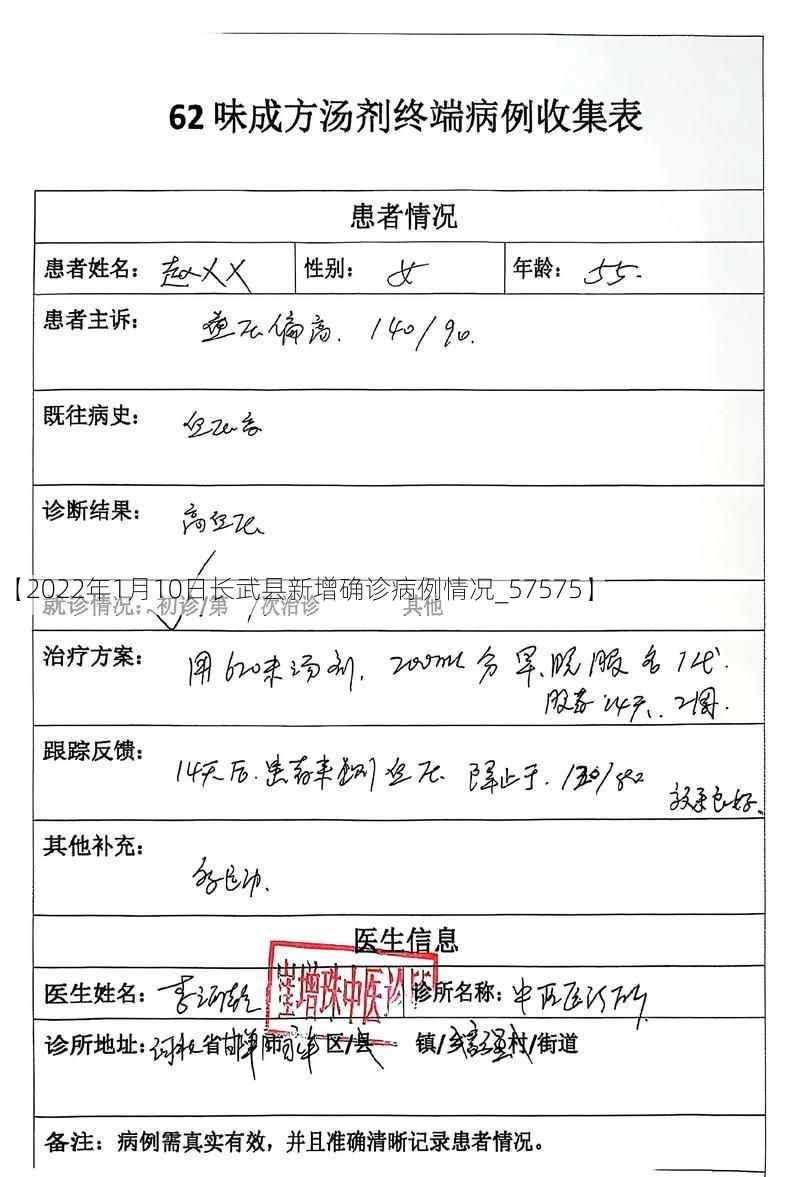 62 味成方汤剂终端病例收集表
患者情况
患者姓名: 赵XX 性别: 女 年龄: 55.
患者主诉: 血压偏高. 140/90.
既往病史: 血压高
诊断结果: 高血压
【2022年1月10日长武县新增确诊病例情况_57575】
就诊情况: 初诊/第 次治诊 其他
治疗方案: 用620味汤剂, 200ml 分早、晚服各1代.
服药14天、2周.
跟踪反馈: 14天后. 患者来测血压
效果良好、
其他补充:
医生信息
医生姓名: 李 诊所名称: 中医诊所
崔增珠中医诊所
诊所地址: 河北省邯郸市 区/县 镇/乡 村/街道
备注: 病例需真实有效，并且准确清晰记录患者情况。